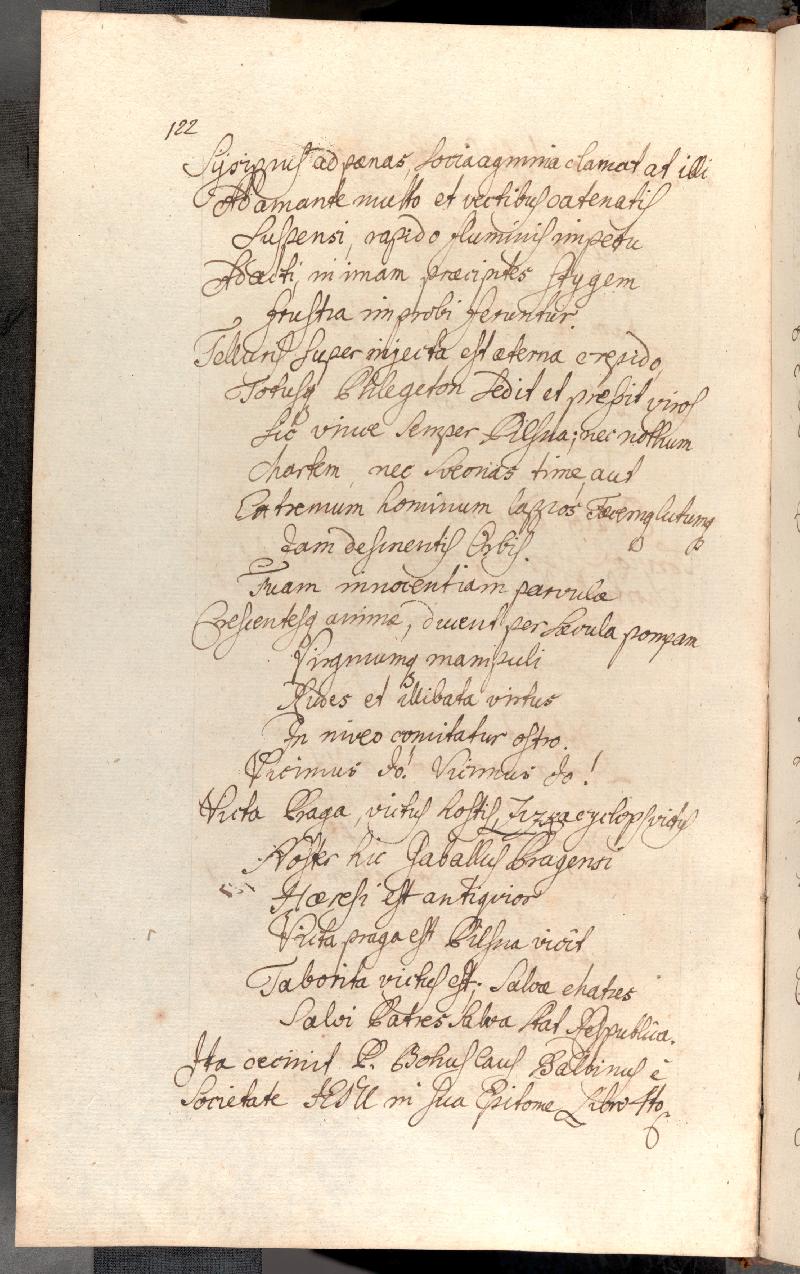 122
Sysiphus ad pænas, socia agmina clamat at illi
Adamante multo et vectibus catenatis
Suspensi, rapido fluminis impetu
Adacti, in imam præcipites stygem
frustra improbi feruntur.
Telluris super injecta est æterna crepido,
Totusq Phlegeton sedit et pressit viros
sic vince semper Pilsna; nec nothum
Martem nec Sveonas time, aut
Extremum hominum fæcemq lutumq
Jam desinentis Orbis.
Tuam innocentiam parvulæ
Crescentesq animæ, ducent per sæcula pompam
Virginumq manipuli
Fides et illibata virtus
In niveo comitatur ostro.
Vicimus Jo! Vicimus Jo!
Victa Praga, victus hostis, Zizza cyclops victus
Noster hic Gaballus Pragensi
Hæresi est antiqvior
Victa praga est Pilsna vicit
Taborita victus est. Salvæ Matres
Salvi Patres Salva stat Respublica.
Ita cecinit P. Bohuslaus Balbinus è
Societate JESU in sua Epitome Libro 4to.